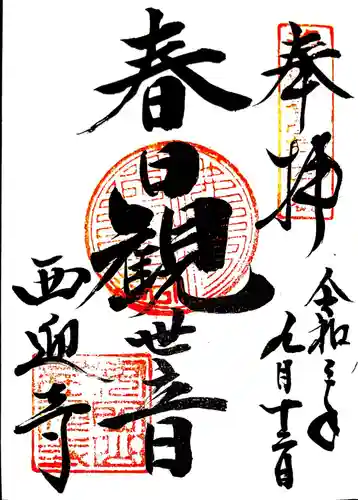 奉拝
令和三年
九月十二日
春日観世音
西迎寺